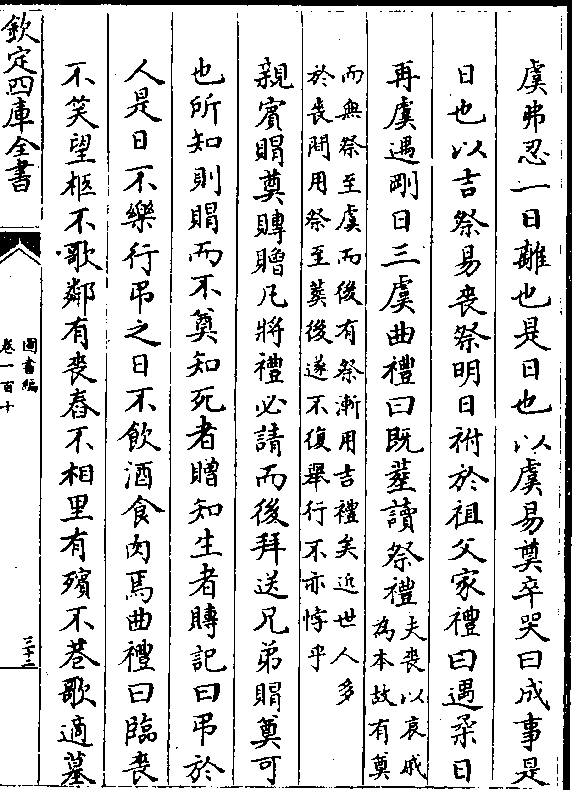 虞弗忍一日離也是日也以虞易奠卒哭曰成事是
日也以吉祭易喪祭明日祔於祖父家禮曰遇柔日
再虞遇剛日三虞曲禮曰既塟讀祭禮夫喪以哀戚
為本故有奠
而無祭至虞而後有祭漸用吉禮矣近世人多
於喪間用祭至葬後遂不復舉行不亦悖乎
親賓賵奠賻贈凡將禮必請而後拜送兄弟賵奠可
也所知則賵而不奠知死者贈知生者賻記曰弔於
人是日不樂行弔之日不飲酒食肉焉曲禮曰臨喪
不笑望柩不歌鄰有喪舂不相里有殯不巷歌適墓
欽定四庫全書
圖書編
卷一百十
三十二